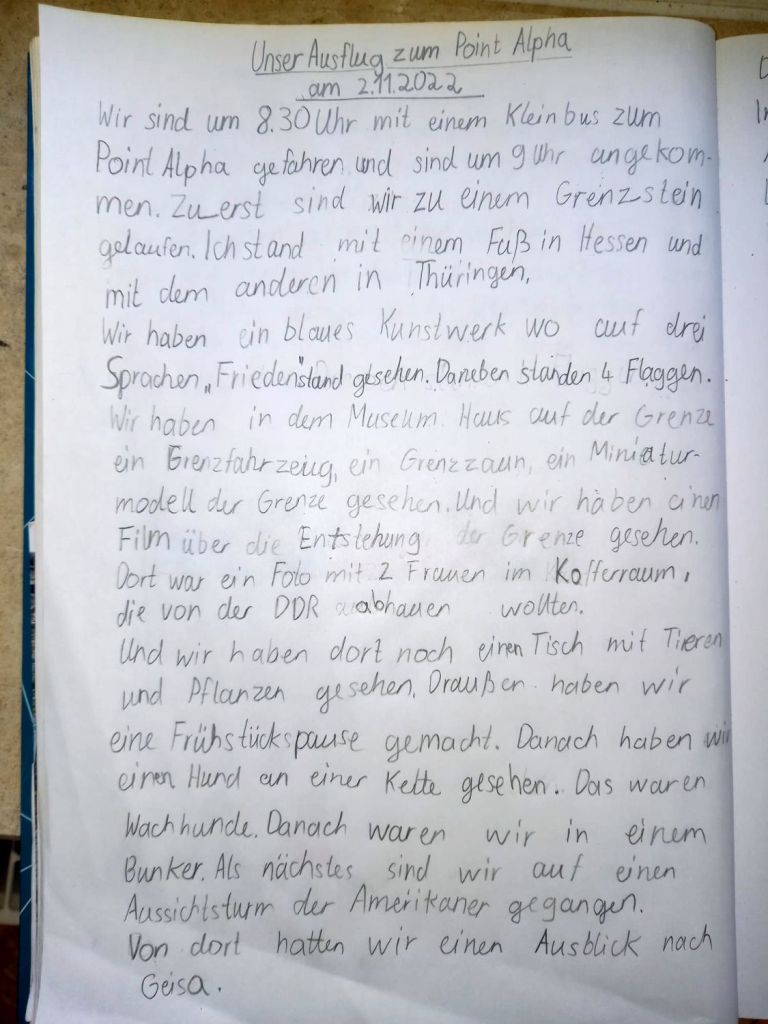 Unser Ausflug zum Point Alpha
am 2.11.2022
Wir sind um 8.30 Uhr mit einem Kleinbus zum
Point Alpha gefahren und sind um 9 Uhr angekom-
men. Zu erst sind wir zu einem Grenzstein
gelaufen. Ich stand mit einem Fuß in Hessen und
mit dem anderen in Thüringen.
Wir haben ein blaues Kunstwerk wo auf drei
Sprachen „Frieden" stand gesehen. Daneben standen 4 Flaggen.
Wir haben in dem Museum Haus auf der Grenze
ein Grenzfahrzeug, ein Grenzzaun, ein Miniatur-
modell der Grenze gesehen. Und wir haben einen
Film über die Entstehung der Grenze gesehen.
Dort war ein Foto mit 2 Frauen im Kofferraum,
die von der DDR abhauen wollten.
Und wir haben dort noch einen Tisch mit Tieren
und Pflanzen gesehen. Draußen haben wir
eine Frühstückspause gemacht. Danach haben wir
einen Hund an einer Kette gesehen. Das waren
Wachhunde. Danach waren wir in einem
Bunker. Als nächstes sind wir auf einen
Aussichtsturm der Amerikaner gegangen.
Von dort hatten wir einen Ausblick nach
Geisa.